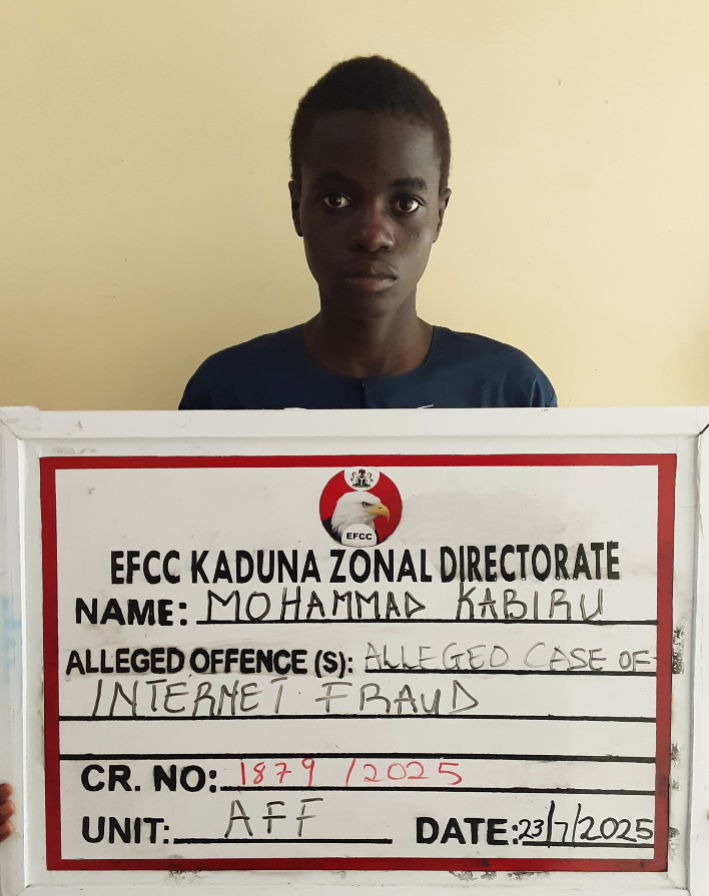 EFCC
EFCC KADUNA ZONAL DIRECTORATE
NAME: MOHAMMAD KABIRU
ALLEGED OFFENCE (S): ALLEGED CASE OF
INTERNET FRAUD
CR. NO: 1879 /2025
UNIT: AFF DATE: 23/7/2025